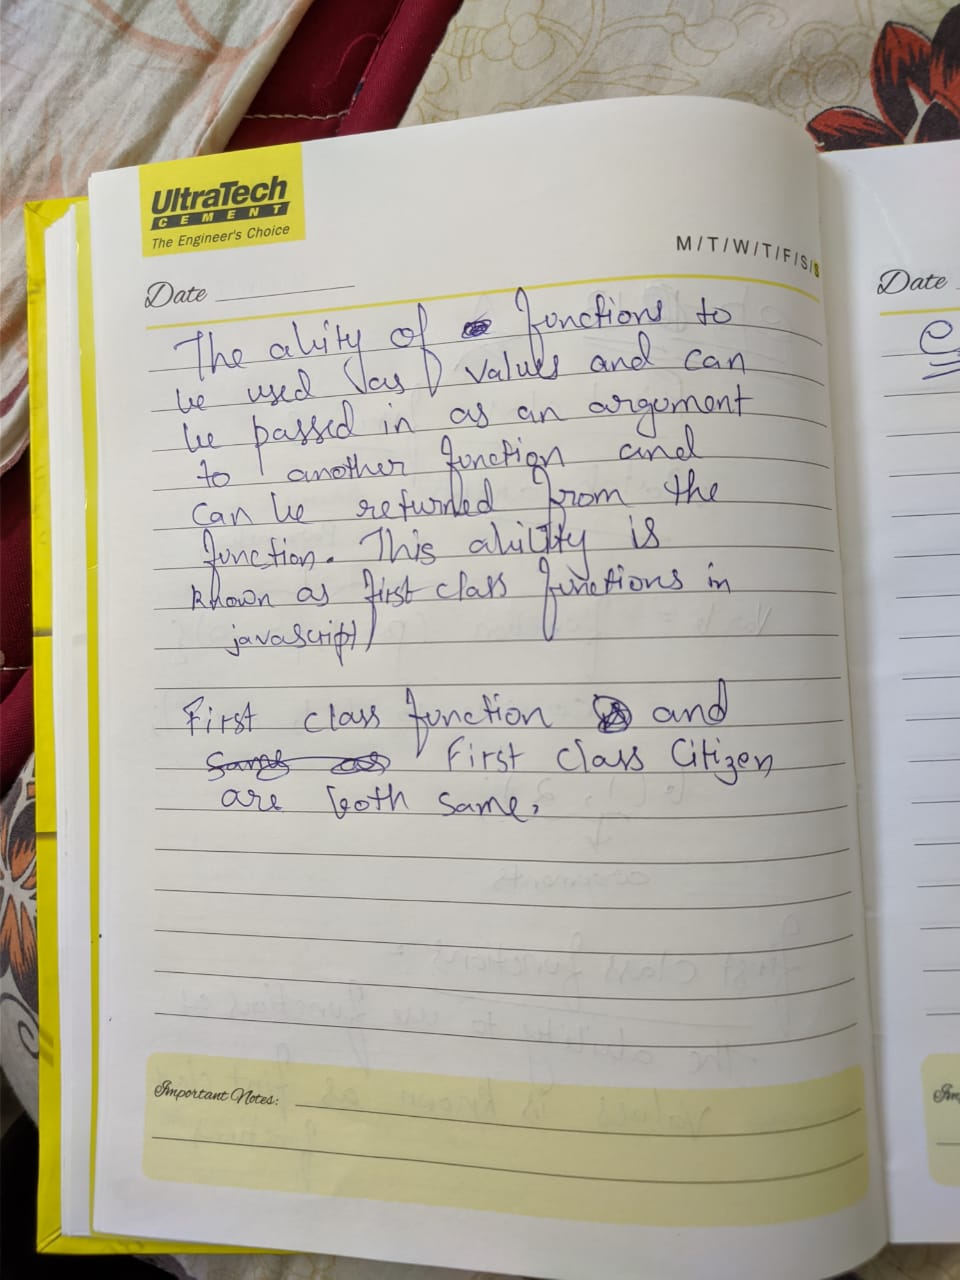 UltraTech
CEMENT
The Engineer's Choice
M/T/W/T/F/S/S
Date
The ability of functions to
be used as values and can
be passed in as an argument
to another function and
can be returned from the
function. This ability is
known as first class functions in
javascript
First class function and
First class Citizen
are both same.
Important Notes:
Date